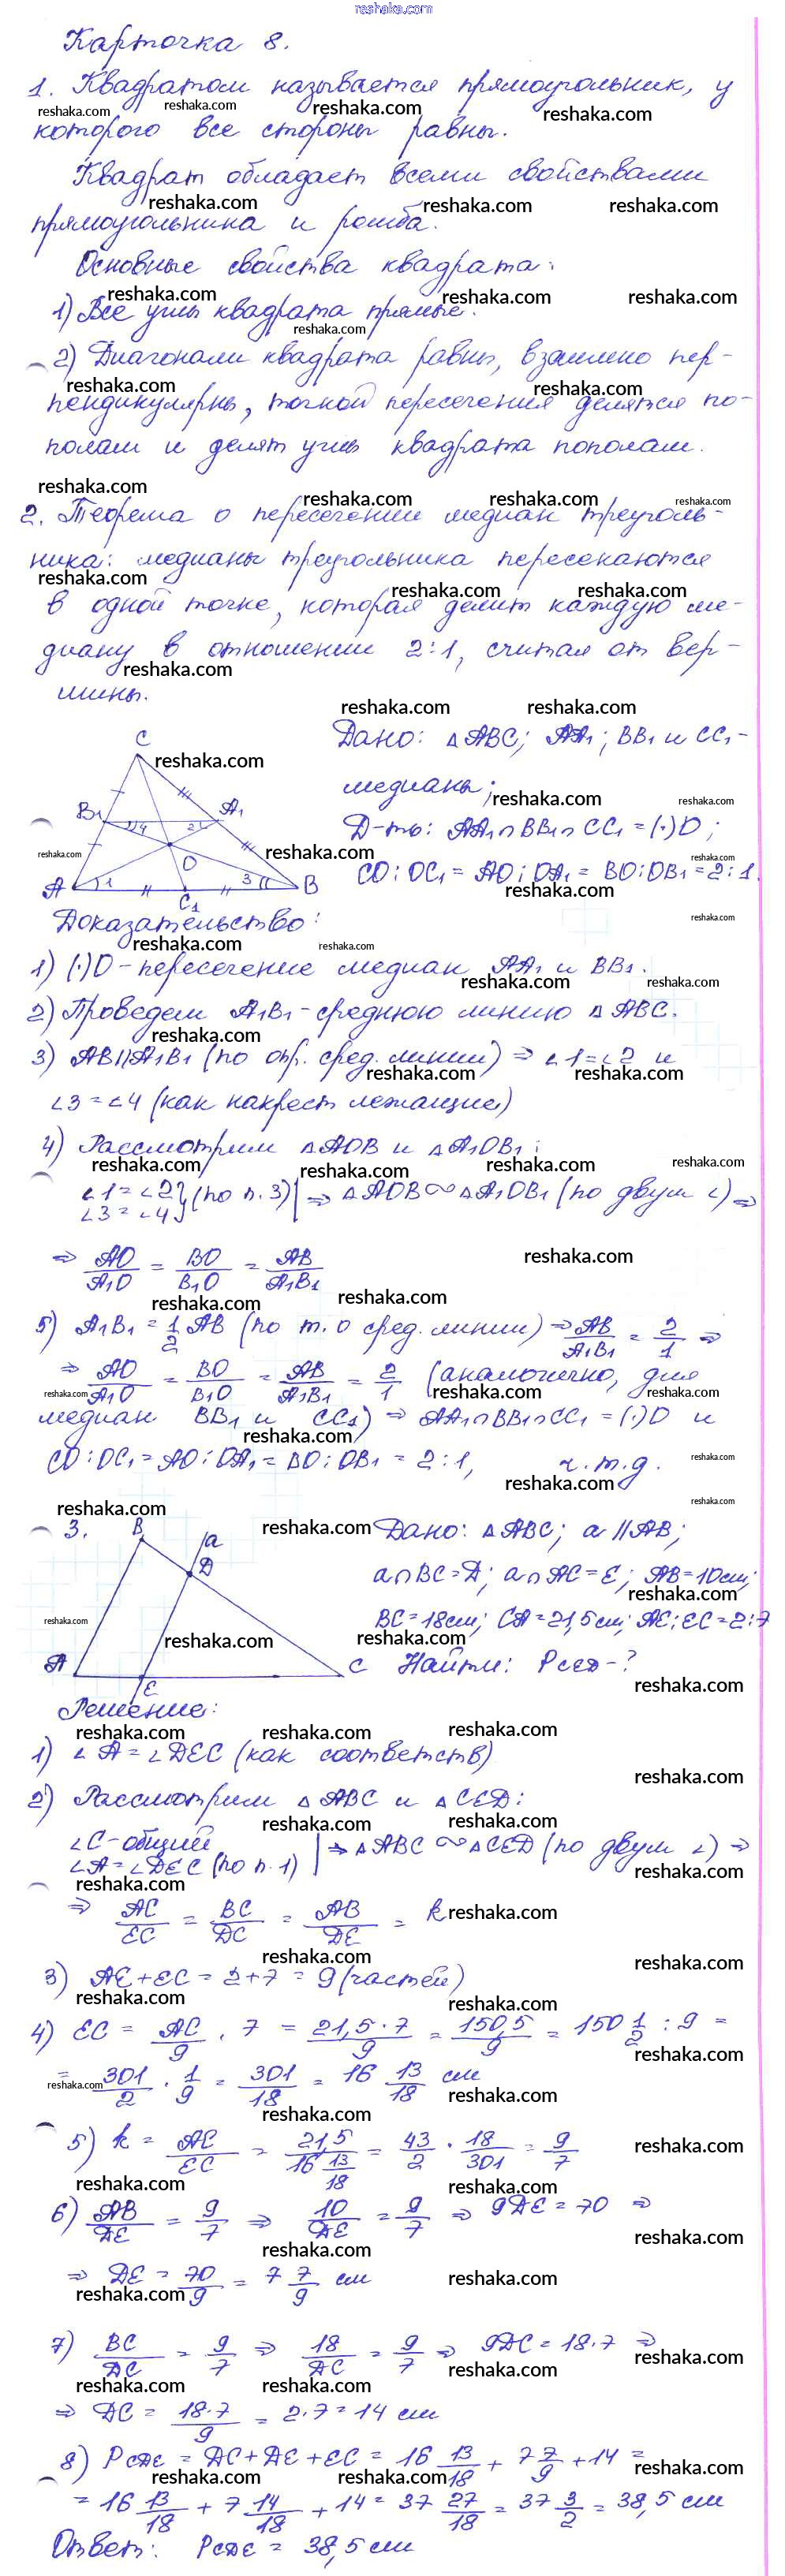 reshaka.com
Карточка 8.
1. Квадратом называется прямоугольник, у
которого все стороны равны.
Квадрат обладает всеми свойствами
прямоугольника и ромба.
Основные свойства квадрата:
1) Все углы квадрата прямые.
2) Диагонали квадрата равны, взаимно пер-
пендикулярны, точкой пересечения делятся по-
полам и делят углы квадрата пополам.
2. Теорема о пересечении медиан треуголь-
ника: медианы треугольника пересекаются
в одной точке, которая делит каждую ме-
диану в отношении 2:1, считая от вер-
шины.
Дано: △ABC; AA₁; BB₁ и CC₁-
медианы;
Д-ть: AA₁∩BB₁∩CC₁=(·)O;
CO:OC₁=AO:OA₁=BO:OB₁=2:1.
C
B₁ 4 2 A₁
O
A 1 3 B
C₁
Доказательство:
1) (·)O - пересечение медиан AA₁ и BB₁.
2) Проведем A₁B₁ - среднюю линию △ABC.
3) AB||A₁B₁ (по опр. сред. линии) ⇒ ∠1=∠2 и
∠3=∠4 (как накрест лежащие)
4) Рассмотрим △AOB и △A₁OB₁:
∠1=∠2
∠3=∠4} (по п.3) | ⇒ △AOB∾△A₁OB₁ (по двум ∠) ⇒
⇒ AO/A₁O = BO/B₁O = AB/A₁B₁
5) A₁B₁ = 1/2 AB (по т. о сред. линии) ⇒ AB/A₁B₁ = 2/1 ⇒
⇒ AO/A₁O = BO/B₁O = AB/A₁B₁ = 2/1 (аналогично, для
медиан BB₁ и CC₁) ⇒ AA₁∩BB₁∩CC₁=(·)O и
CO:OC₁=AO:OA₁=BO:OB₁=2:1, ч.т.д.
3.
B a
D
A E C
Дано: △ABC; a||AB;
a∩BC=D; a∩AC=E; AB=10см;
BC=18см; CA=21,5см; AE:EC=2:7
Найти: PCED-?
Решение:
1) ∠A=∠DEC (как соответств)
2) Рассмотрим △ABC и △CED:
∠C-общий
∠A=∠DEC (по п.1) | ⇒ △ABC∾△CED (по двум ∠) ⇒
⇒ AC/EC = BC/DC = AB/DE = k
3) AE+EC=2+7=9 (частей)
4) EC = AC/9 · 7 = 21,5·7/9 = 150,5/9 = 150 1/2 : 9 =
= 301/2 · 1/9 = 301/18 = 16 13/18 см
5) k = AC/EC = 21,5/16 13/18 = 43/2 · 18/301 = 9/7
6) AB/DE = 9/7 ⇒ 10/DE = 9/7 ⇒ 9DE=70 ⇒
⇒ DE = 70/9 = 7 7/9 см
7) BC/DC = 9/7 ⇒ 18/DC = 9/7 ⇒ 9DC=18·7 ⇒
⇒ DC = 18·7/9 = 2·7=14 см
8) PCDE = DC+DE+EC = 16 13/18 + 7 7/9 + 14 =
= 16 13/18 + 7 14/18 + 14 = 37 27/18 = 37 3/2 = 38,5 см
Ответ: PCDE = 38,5 см